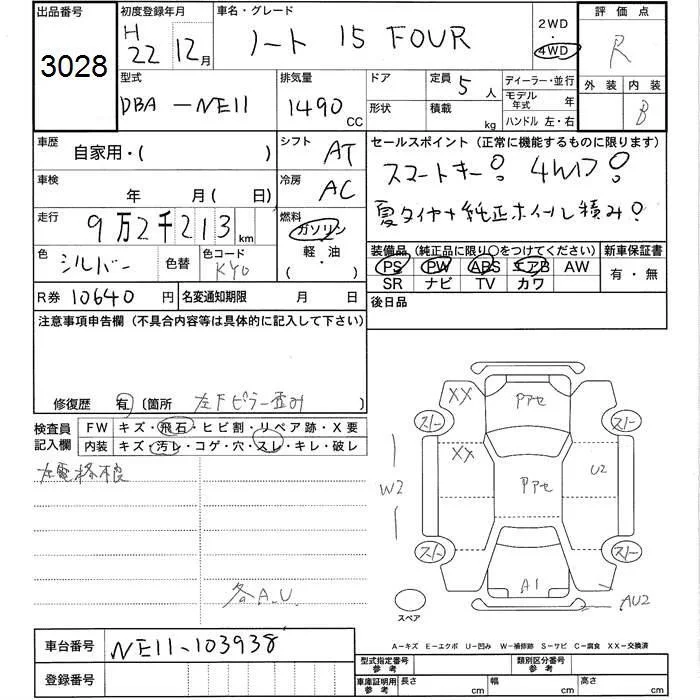 出品番号 初度登録年月 車名・グレード 2WD 評価点
3028 H22 12月 ノート 15 FOUR 4WD R
型式 排気量 ドア 定員 5人 ディーラー・並行 外装 内装
DBA-NE11 1490cc 形状 積載 kg モデル年式 年 B
ハンドル 左・右
車歴 自家用・( ) シフト AT セールスポイント(正常に機能するものに限ります)
車検 年 月(日) 冷房 AC スマートキー○ 4WD○
走行 9万2千213km 燃料 ガソリン 夏タイヤ+純正ホイール積み○
軽・油
( )
色 シルバー 色替 色コード KY0 装備品(純正品に限り○をつけてください) 新車保証書
PS PW ABS エアB AW 有・無
SR ナビ TV カワ
R券 10640円 名変通知期限 月 日 後日品
注意事項申告欄(不具合内容等は具体的に記入して下さい)
修復歴 有 (箇所 左Fピラー歪み
検査員記入欄 FW キズ・飛石・ヒビ割・リペア跡・X要
内装 キズ・汚レ・コゲ・穴・スレ・キレ・破レ
左電格不良
各A.U.
XX Pアセ
スト— スト—
XX U2
W2 Pアセ
スト— スト—
A1
AU2
スペア
車台番号 NE11-103938 A-キズ E-エクボ U-凹み W-補修跡 S-サビ C-腐食 XX-交換済
登録番号 型式指定番号 参考 類別区分番号 参考
車庫証明用 参考 長さ cm 幅 cm 高さ cm